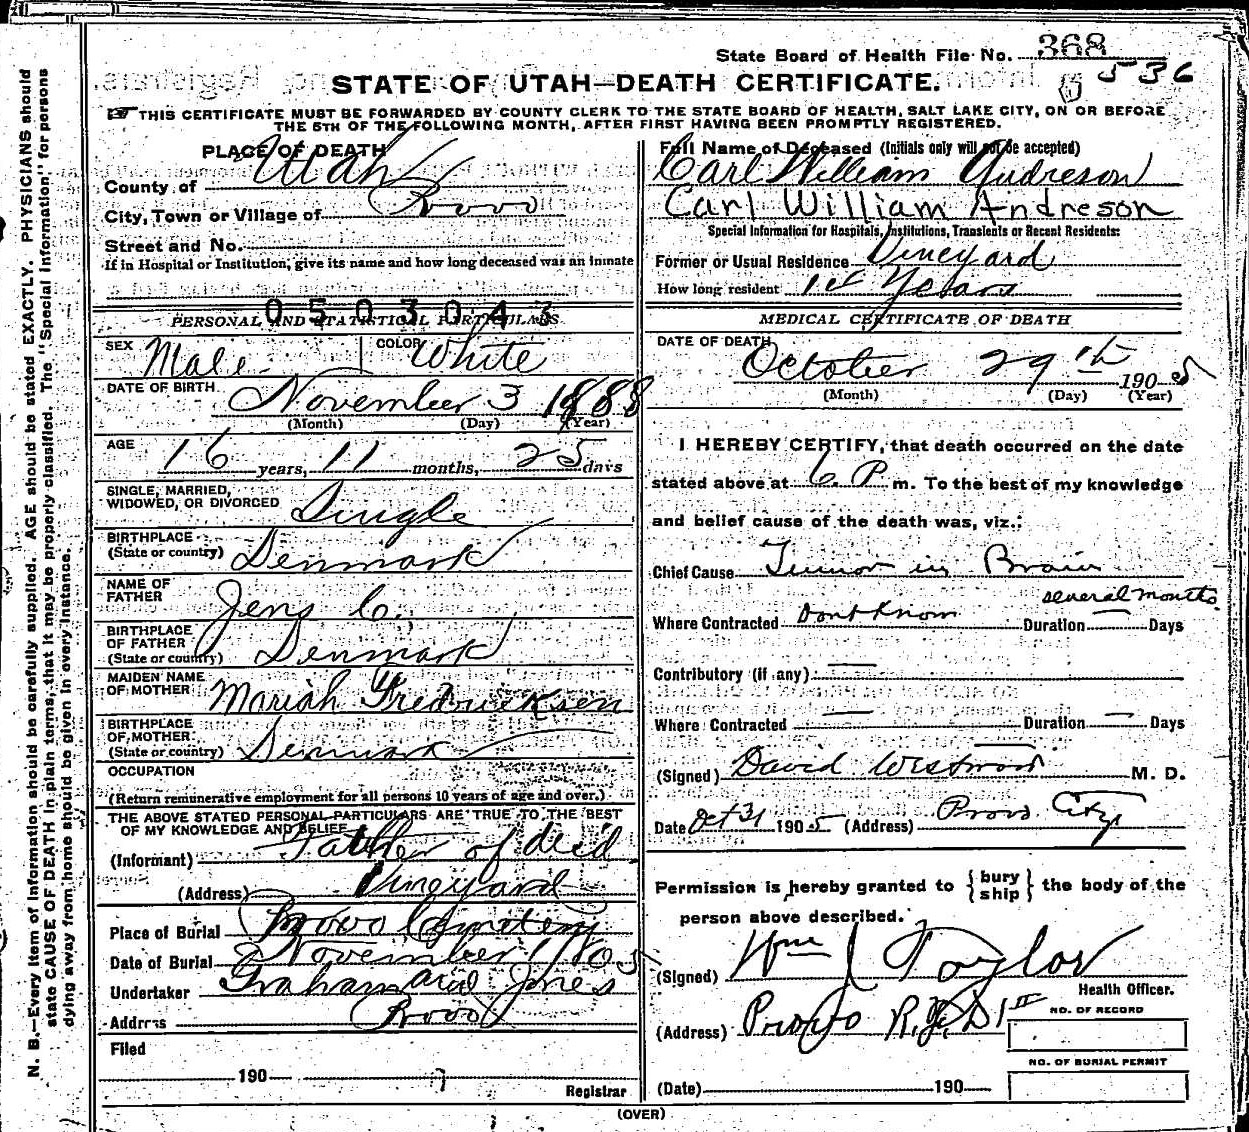 State Board of Health File No. 368
536
STATE OF UTAH—DEATH CERTIFICATE.
THIS CERTIFICATE MUST BE FORWARDED BY COUNTY CLERK TO THE STATE BOARD OF HEALTH, SALT LAKE CITY, ON OR BEFORE
THE 5TH OF THE FOLLOWING MONTH, AFTER FIRST HAVING BEEN PROMPTLY REGISTERED.
N. B.—Every item of information should be carefully supplied. AGE should be stated EXACTLY. PHYSICIANS should
state CAUSE OF DEATH in plain terms, that it may be properly classified. The "Special Information" for persons
dying away from home should be given in every instance.
PLACE OF DEATH
County of Utah
City, Town or Village of Provo
Street and No.
If in Hospital or Institution, give its name and how long deceased was an inmate
0503043
PERSONAL AND STATISTICAL PARTICULARS
SEX Male COLOR White
DATE OF BIRTH November 3 1888
(Month) (Day) (Year)
AGE 16 years, 11 months, 25 days
SINGLE, MARRIED,
WIDOWED, OR DIVORCED Single
BIRTHPLACE
(State or country) Denmark
NAME OF
FATHER Jens C.
BIRTHPLACE
OF FATHER
(State or country) Denmark
MAIDEN NAME
OF MOTHER Mariah Fredricksen
BIRTHPLACE
OF MOTHER
(State or country) Denmark
OCCUPATION
(Return remunerative employment for all persons 10 years of age and over.)
THE ABOVE STATED PERSONAL PARTICULARS ARE TRUE TO THE BEST
OF MY KNOWLEDGE AND BELIEF
(Informant) Father of dec'd
(Address) Vineyard
Place of Burial Provo Cemetery
Date of Burial November 1 1905
Undertaker Graham and Jones
Address Provo
Filed
190
Registrar
Full Name of Deceased (Initials only will not be accepted)
Carl William Andreson
Carl William Andreson
Special Information for Hospitals, Institutions, Transients or Recent Residents:
Former or Usual Residence Vineyard
How long resident Years
MEDICAL CERTIFICATE OF DEATH
DATE OF DEATH
October 29th 1905
(Month) (Day) (Year)
I HEREBY CERTIFY, that death occurred on the date
stated above at 6 P. m. To the best of my knowledge
and belief cause of the death was, viz.:
Chief Cause Tumor in Brain
several months
Where Contracted Dont Know Duration — Days
Contributory (if any) —
Where Contracted — Duration — Days
(Signed) David Westwood M. D.
Date Oct 31 1905 (Address) Provo City
Permission is hereby granted to { bury ship } the body of the
person above described.
(Signed) Wm J Taylor
Health Officer.
(Address) Provo R.F.D 1
NO. OF RECORD
NO. OF BURIAL PERMIT
(Date) 190
(OVER)